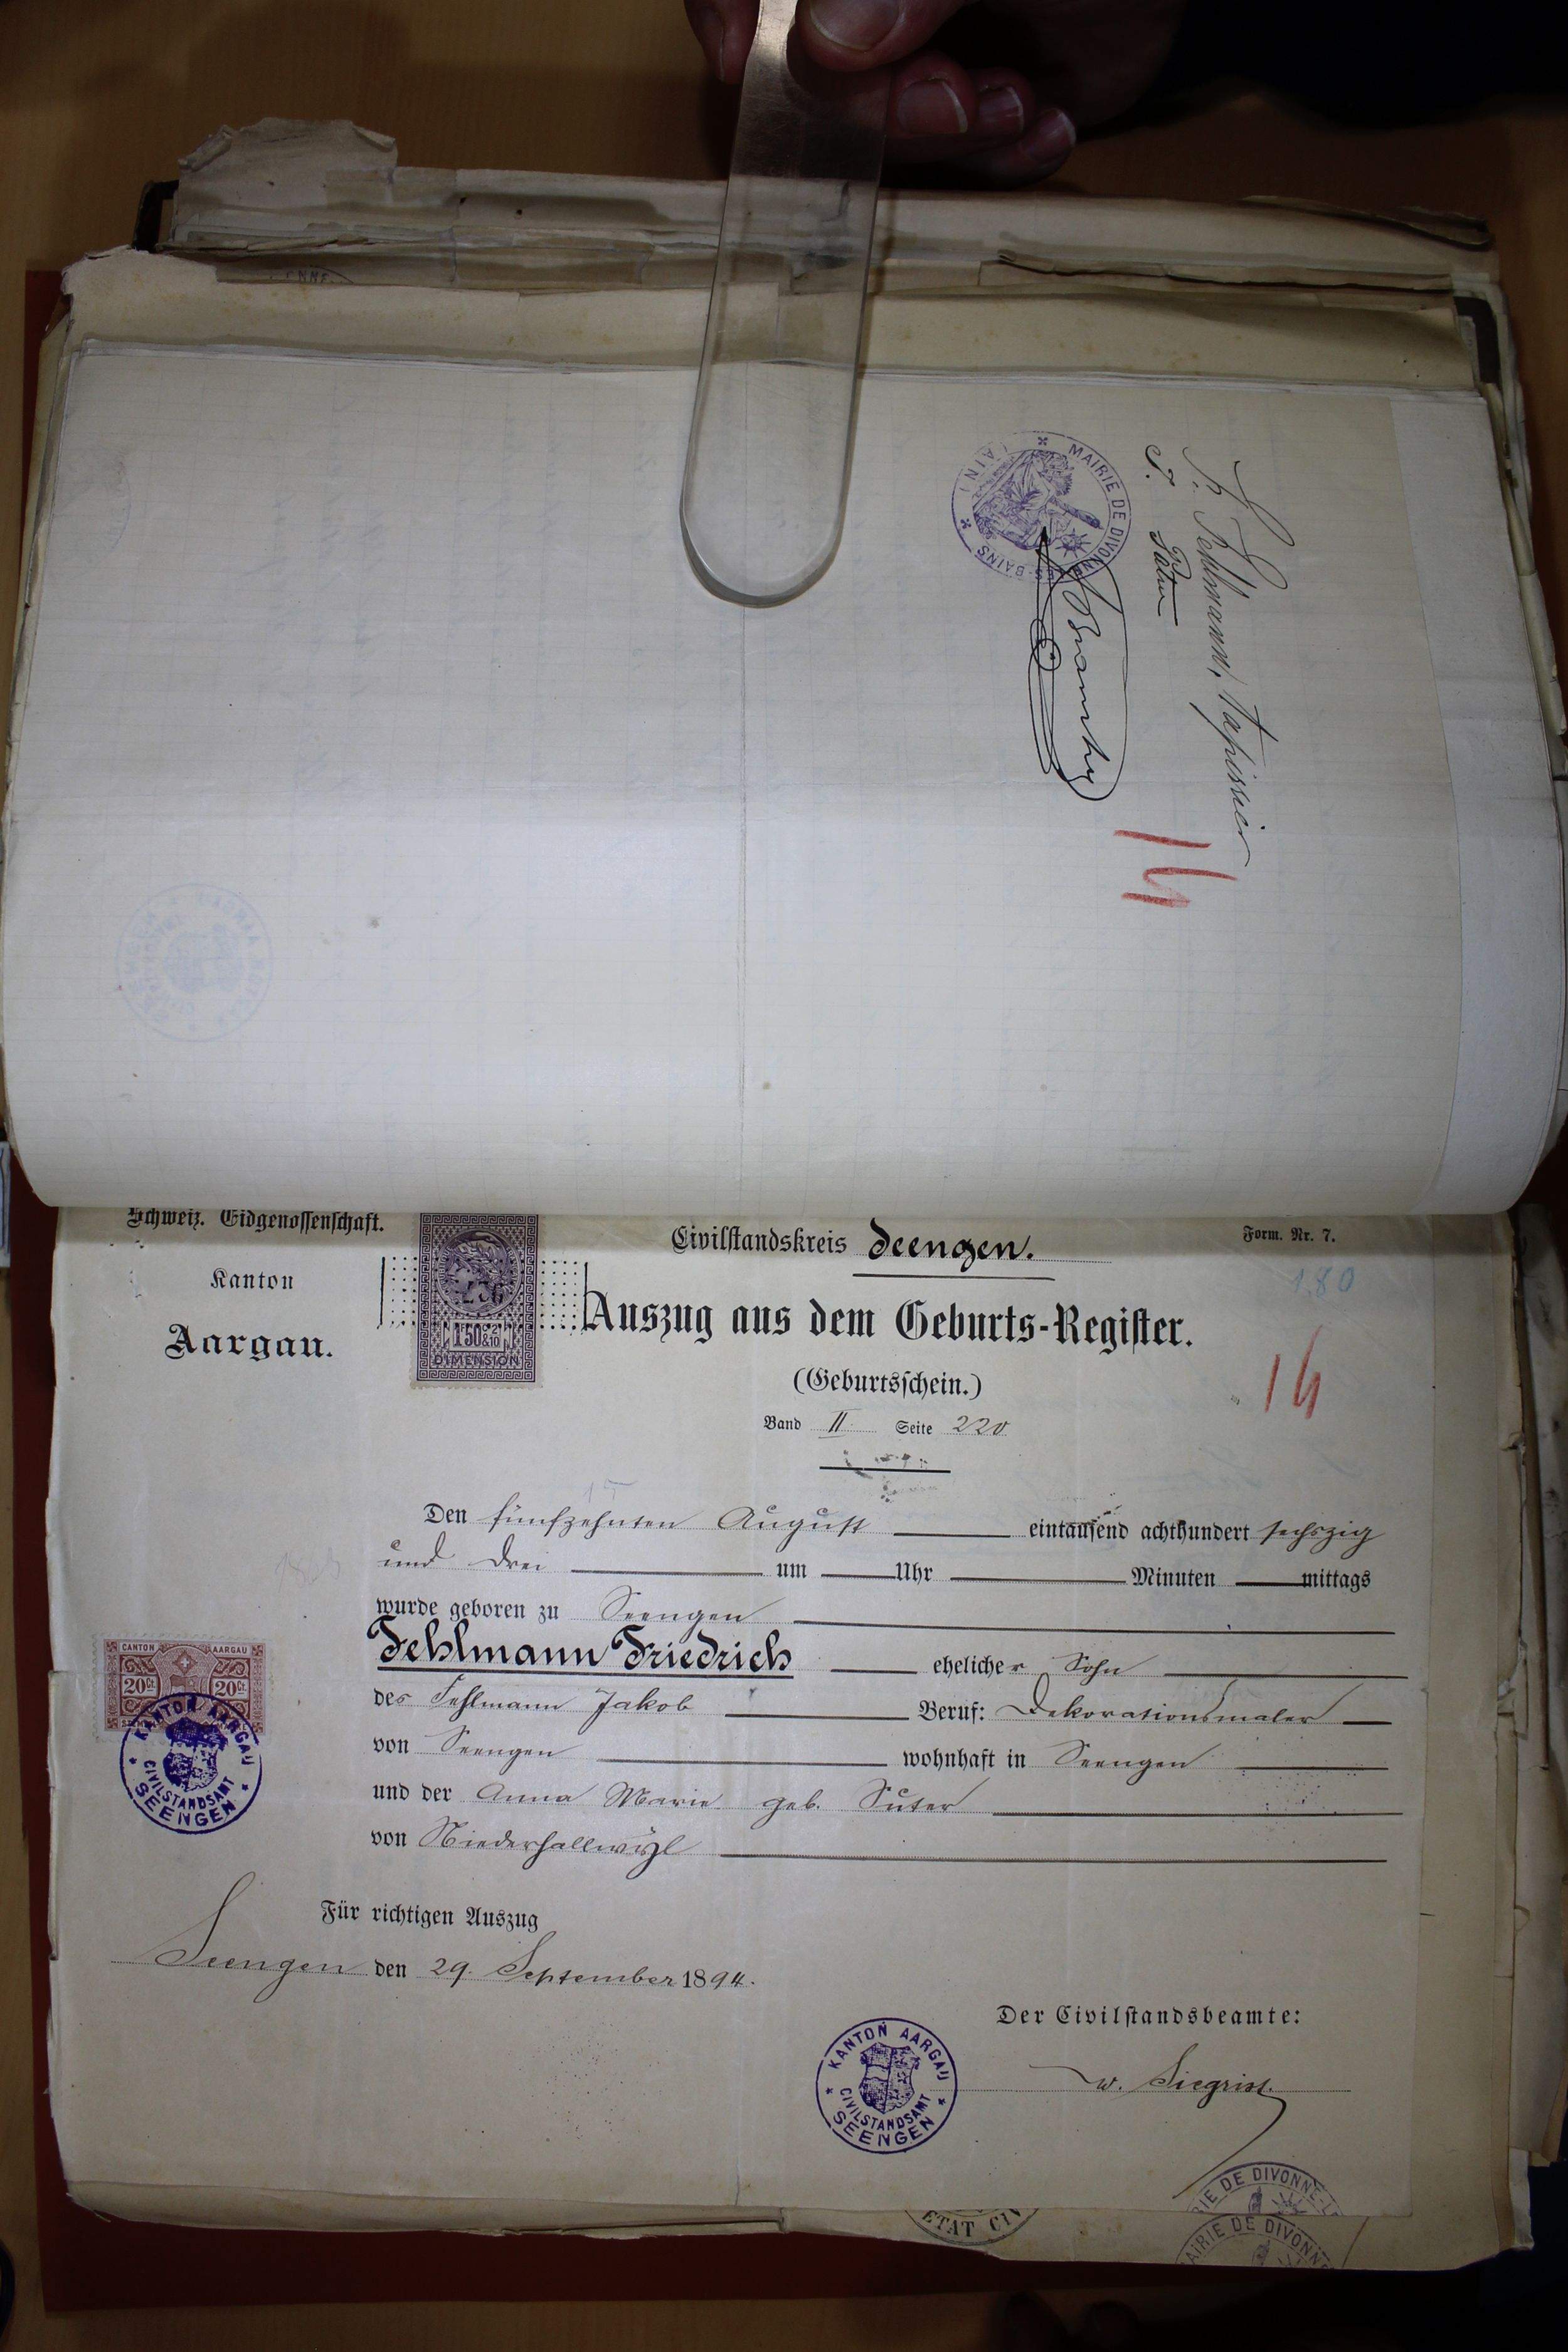 MAIRIE DE DIVONNE-LES-BAINS
(AIN)
F. Fehlmann, Tapissier
14
Schweiz. Eidgenossenschaft.
Kanton
Aargau.
1F50&2/10
DIMENSION
Civilstandskreis Seengen.
Form. Nr. 7.
180
Auszug aus dem Geburts-Register.
(Geburtsschein.)
14
Band II. Seite 220
15
Den fünfzehnten August eintausend achthundert sechszig
und drei um Uhr Minuten mittags
wurde geboren zu Seengen
Fehlmann Friedrich ehelicher Sohn
des Fehlmann Jakob Beruf: Dekorationsmaler
von Seengen wohnhaft in Seengen
und der Anna Marie geb. Suter
von Niederhallwyl
CANTON AARGAU
20Ct. 20Ct.
KANTON AARGAU
CIVILSTANDSAMT
SEENGEN
Für richtigen Auszug
Seengen den 29. September 1894.
Der Civilstandsbeamte:
W. Siegrist.
KANTON AARGAU
CIVILSTANDSAMT
SEENGEN
RIE DE DIVONNE-LE
ETAT CIV
AIRIE DE DIVONNE